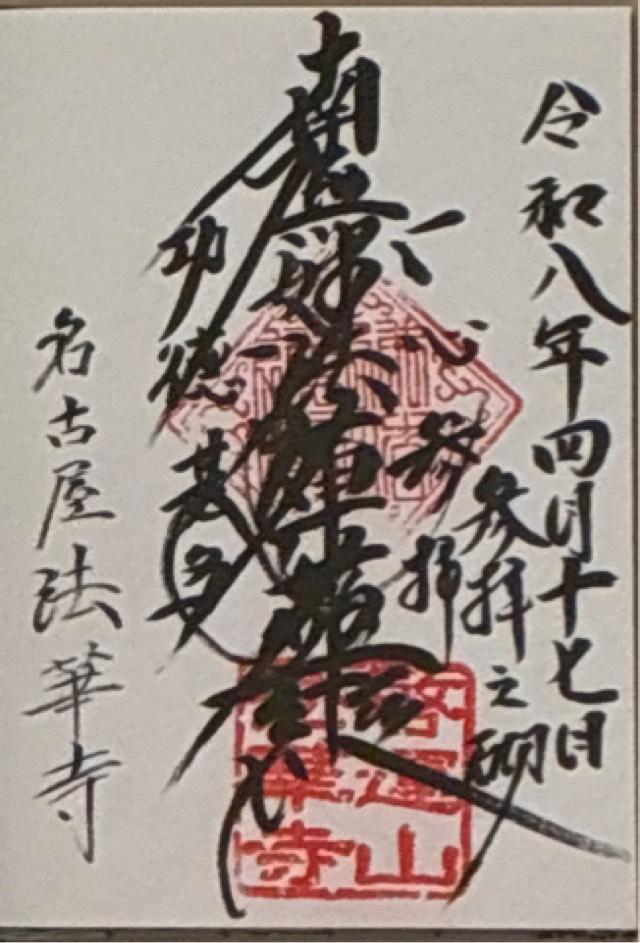 令和八年四月十七日
参拝之砌
一心参拝
南無妙法蓮華経
功徳甚多
名古屋法華寺
蓮山
法華寺